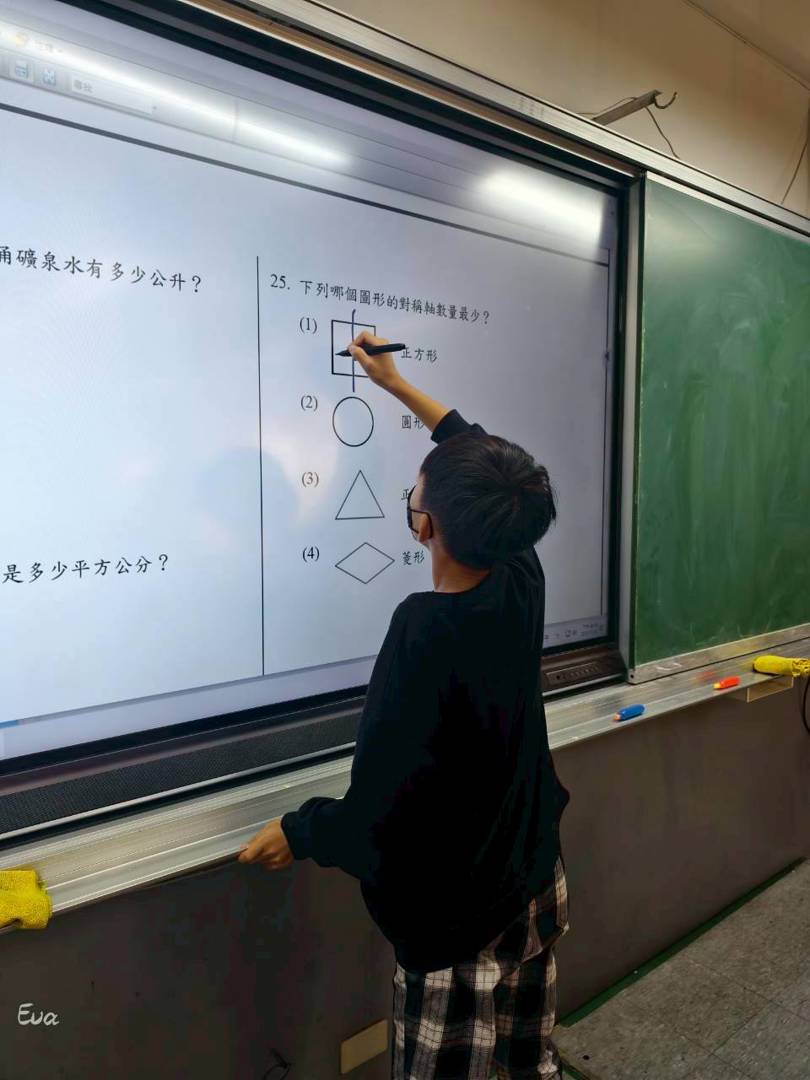 尋找
桶礦泉水有多少公升？
是多少平方公分？
25. 下列哪個圖形的對稱軸數量最少？
(1) 正方形
(2) 圓形
(3) 正
(4) 菱形
Eva